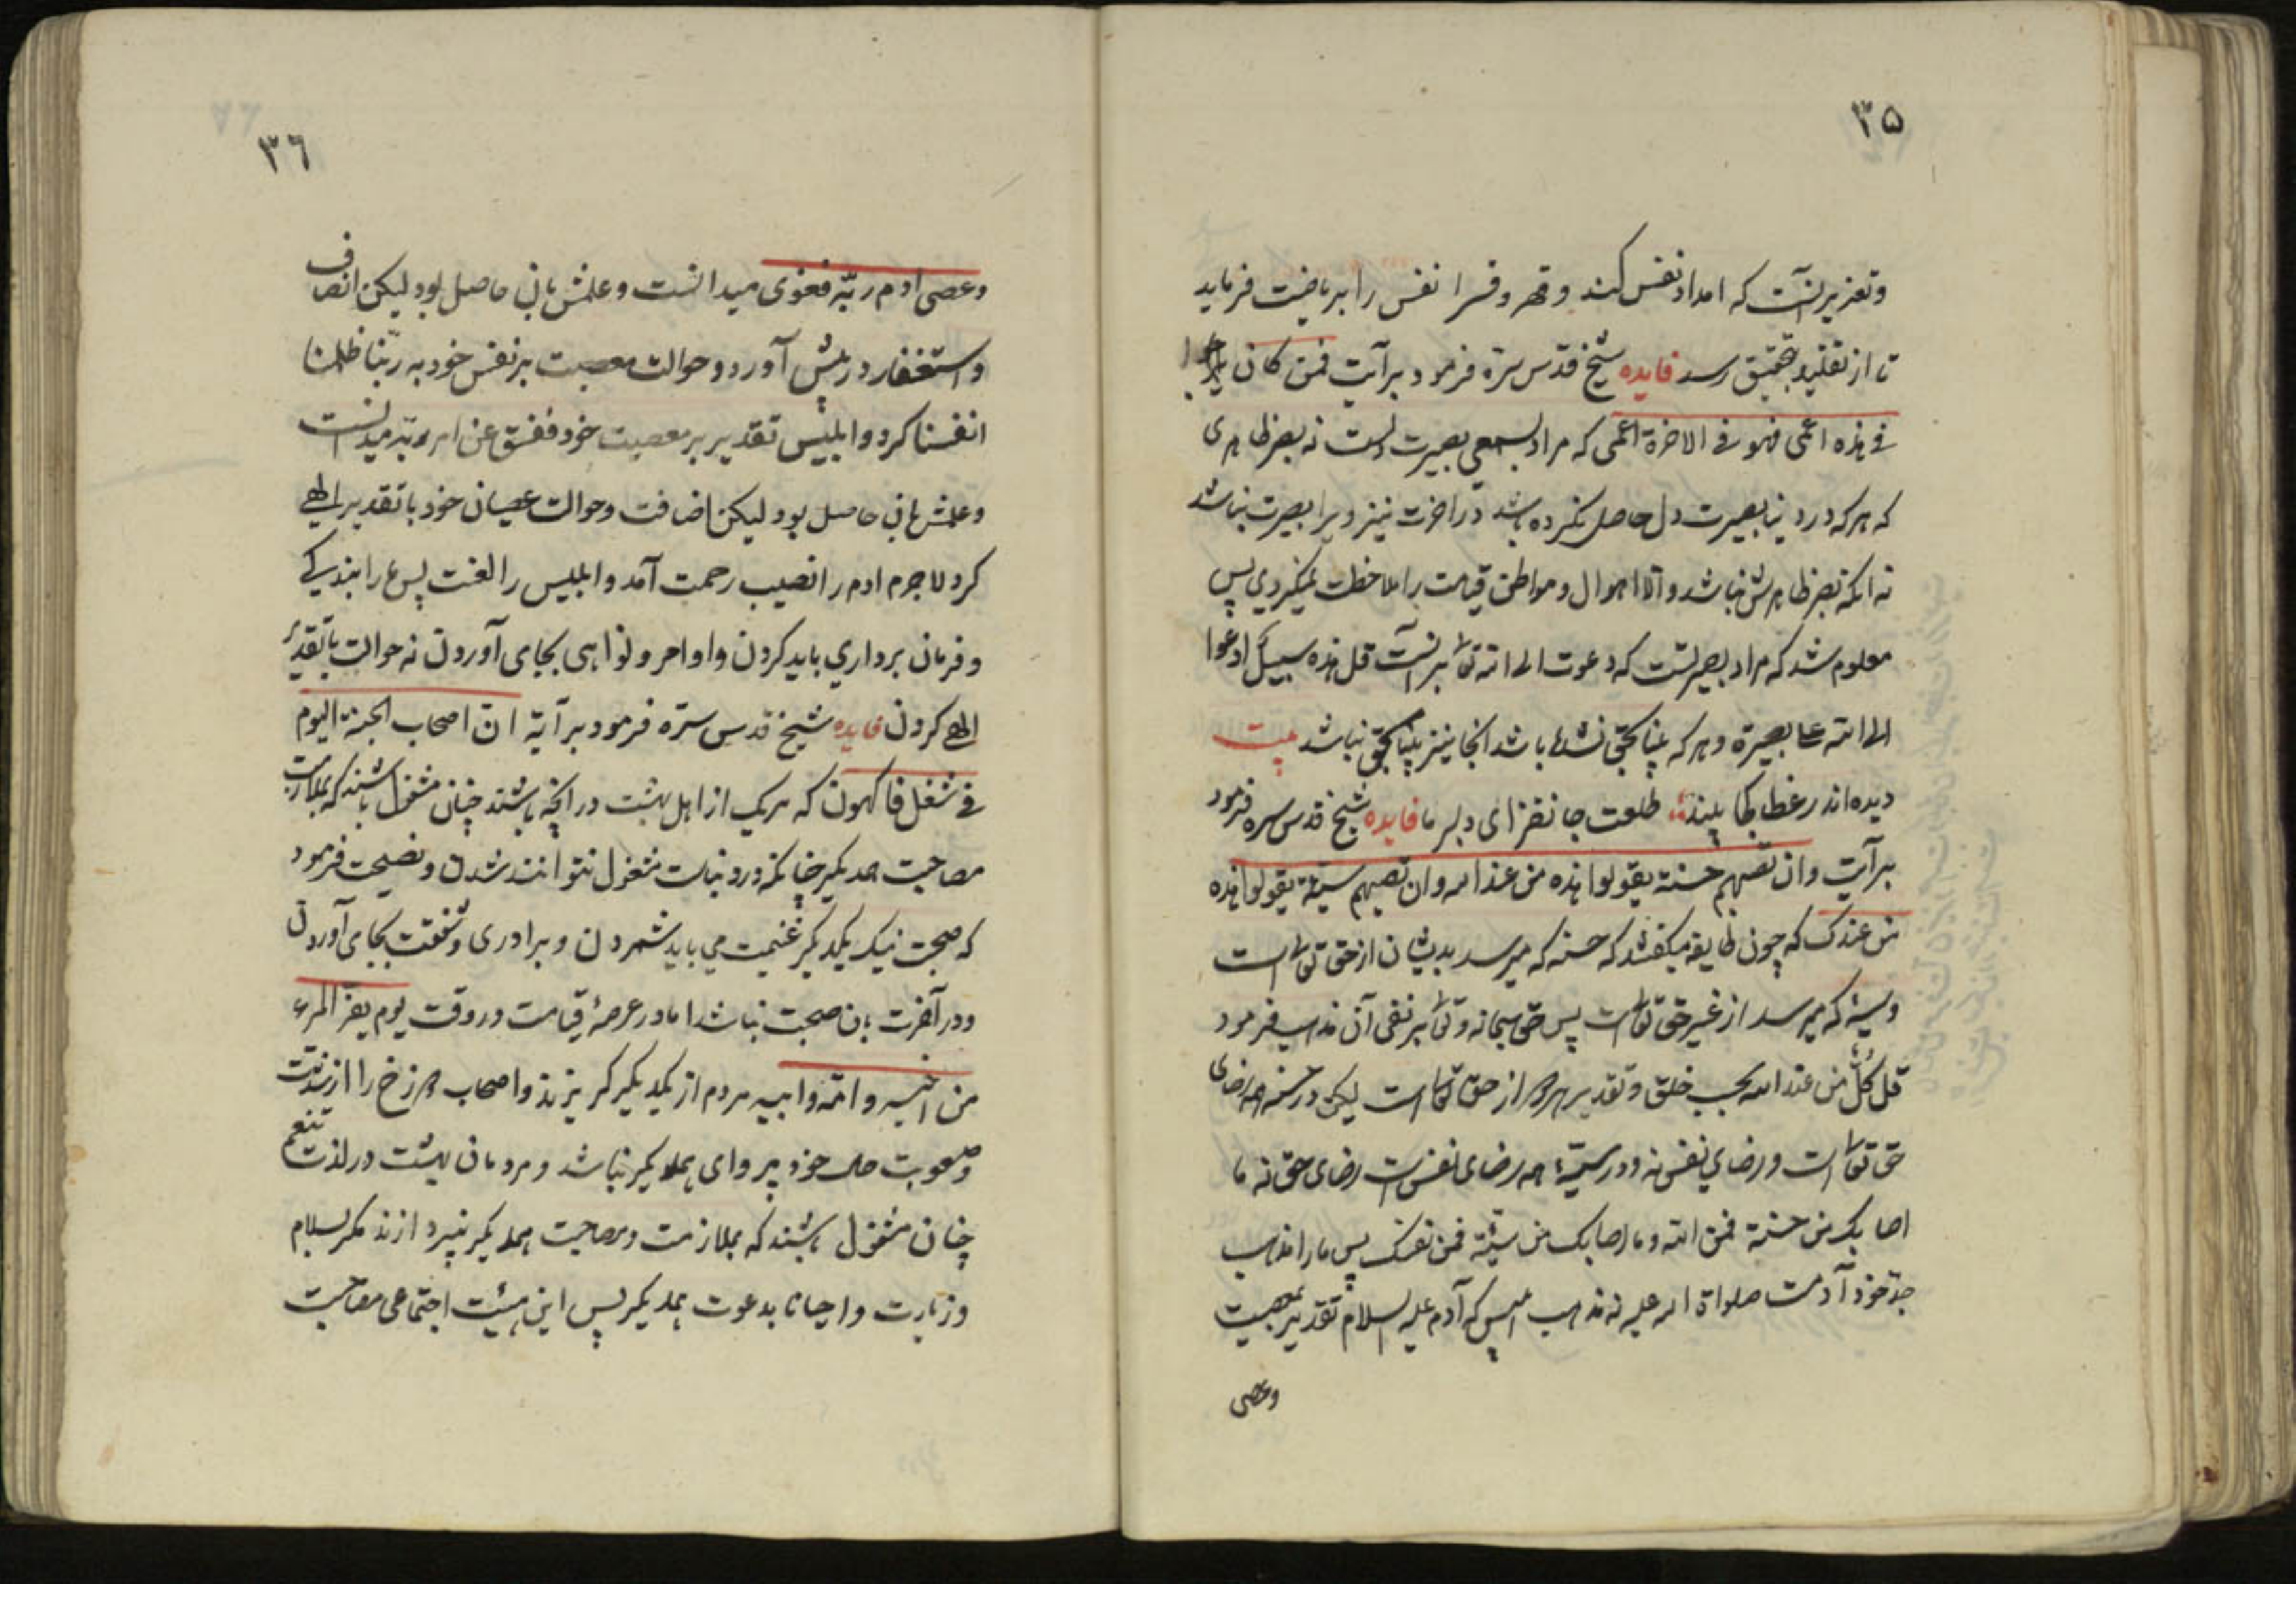 ۳۵
وتعزیر آنست که امداد نفس کند وقهر وقسرا نفس را بریاضت فرماید
تا از تقلید بتحقیق رسد فایده شیخ قدس سره فرمود بر آیت فمن کان
فی هذه اعمی فهو فی الاخرة اعمی که مراد بصیرت است نه بصر ظاهری
که هر که در دنیا بصیرت دل حاصل نکرده باشد در اخرت نیز ویرا بصیرت نباشد
نه انکه بصر ظاهرش نباشد والا اهوال ومواطن قیامت را ملاحظت نمیکردی پس
معلوم شد که مراد بصیرتست که دعوت الی الله تعالی بر آنست قل هذه سبیلی ادعوا
الی الله علی بصیرة وهر که بینا بحق نشد باشد انجا نیز بینا بحق نباشد بیت
دیده اندر غطا کجا بیند طلعت جانفزای دلبر ما فایده شیخ قدس سره فرمود
بر آیت وان تصبهم حسنة یقولوا هذه من عند الله وان تصبهم سیئة یقولوا هذه
من عندک که چون طایفه میکفتند که حسنه که میرسد بدیشان از حق تعالی است
وسیئه که میرسد از غیر حق تعالی است پس حق سبحانه وتعالی بر نفی آن مذهب فرمود
قل کل من عند الله بحسب خلق وتقدیر هر دو از حق تعالی است لیکن در حسنه رضای
حق تعالی است ورضای نفس نه ودر سیئه رضای نفس است رضای حق نه ما
اصابک من حسنة فمن الله وما اصابک من سیئة فمن نفسک پس ما را مذهب
جد خود آدمست صلواة الله علیه نه مذهب ابلیس که آدم علیه السلام تقدیر بمعصیت
وعصی
۳٦
وعصی ادم ربّه فغوی میدانست وعلمش بان حاصل بود لیکن انصاف
واستغفار در پیش آورد وحوالت معصیت بر نفس خود به ربّنا ظلمنا
انفسنا کرد وابلیس تقدیر بر معصیت خود ففسق عن امر ربّه میدانست
وعلمش بان حاصل بود لیکن اضافت وحوالت عصیان خود با تقدیر الهی
کرد لاجرم ادم را نصیب رحمت آمد وابلیس را لعنت پس ما را بندکی
وفرمان برداری باید کردن واوامر ونواهی بجای آوردن نه حوالت با تقدیر
الهی کردن فایده شیخ قدس سرّه فرمود بر آیة انّ اصحاب الجنة الیوم
فی شغل فاکهون که هریک از اهل بهشت در انچه باشند چنان مشغول باشند که بملازمت
مصاحبت همدیکر چنانکه در دنیاست مشغول نتوانند شدن ونصیحت فرمود
که صحبت نیک یکدیکر غنیمت می باید شمردن وبرادری وشفقت بجای آوردن
ودر آخرت بان صحبت نباشد اما در عرصهٔ قیامت در وقت یوم یفرّ المرء
من اخیه وامّه وابیه مردم از یکدیکر کریزند واصحاب دوزخ را از شدّت
وصعوبت حال خود پروای همدیکر نباشد ومردمان بهشت در لذت تنعم
چنان مشغول باشند که بملازمت ومصاحبت همدیکر نپردازند مکر بسلام
وزیارت واحیانا بدعوت همدیکر پس این هیئت اجتماعی مصاحبت